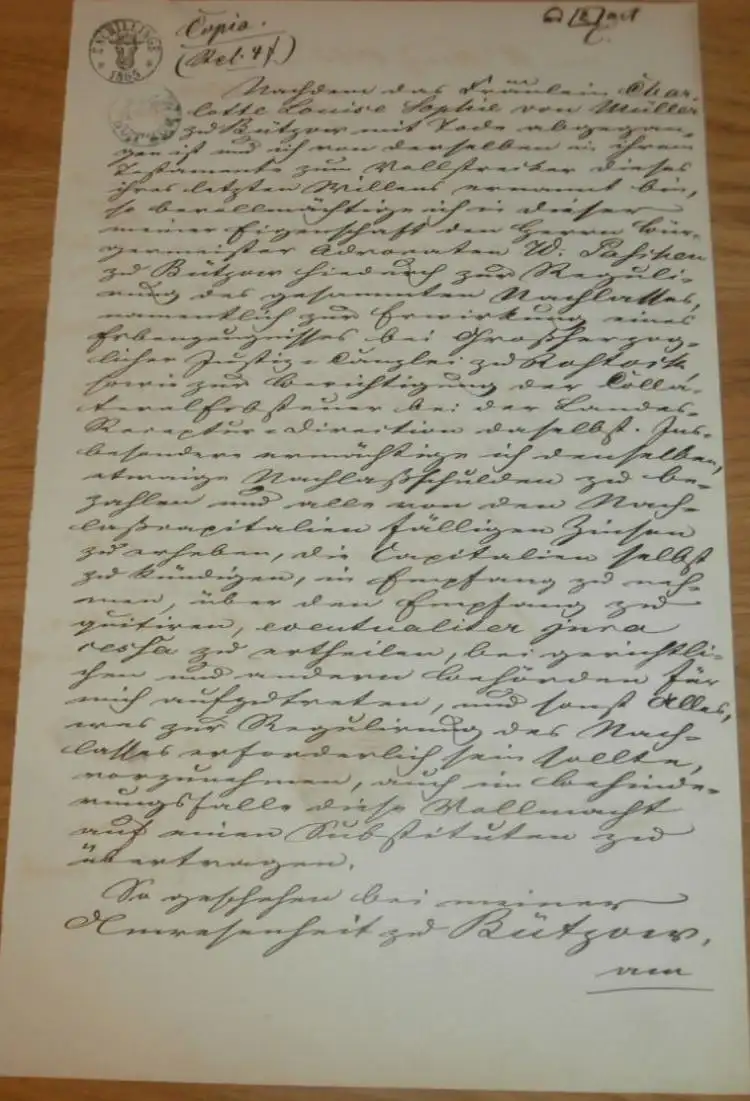 SCHILLINGE
1865
Copia.
(Rel. 47)
Nachdem das Fräulein Char-
lotte Louise Sophie von Müller
zu Bützow mit Tode abgegan-
gen ist und ich von derselben in ihrem
Testamente zum Vollstrecker dieses
ihres letzten Willens ernannt bin,
so bevollmächtige ich in dieser
meiner Eigenschaft den Herrn Bür-
germeister Advocaten W. Paschen
zu Bützow hiedurch zur Reguli-
rung des gesammten Nachlasses,
namentlich zur Erwirkung eines
Erbenzeugnisses bei Großherzog-
licher Justiz-Canzlei zu Rostock,
sowie zur Berichtigung der Colla-
teralerbsteuer bei der Landes-
Receptur-Direction daselbst. Ins-
besondere ermächtige ich denselben,
etwaige Nachlaßschulden zu be-
zahlen und alle von den Nach-
laßcapitalien fälligen Zinsen
zu erheben, die Capitalien selbst
zu kündigen, in Empfang zu neh-
men, über den Empfang zu
quitiren, eventualiter jura
cessa zu ertheilen, bei gerichtli-
chen und andern Behörden für
mich aufzutreten, und sonst Alles,
was zur Regulirung des Nach-
lasses erforderlich sein sollte,
vorzunehmen, auch im Behinde-
rungsfalle diese Vollmacht
auf einen Substituten zu
übertragen.
So geschehen bei meiner
Anwesenheit zu Bützow,
am